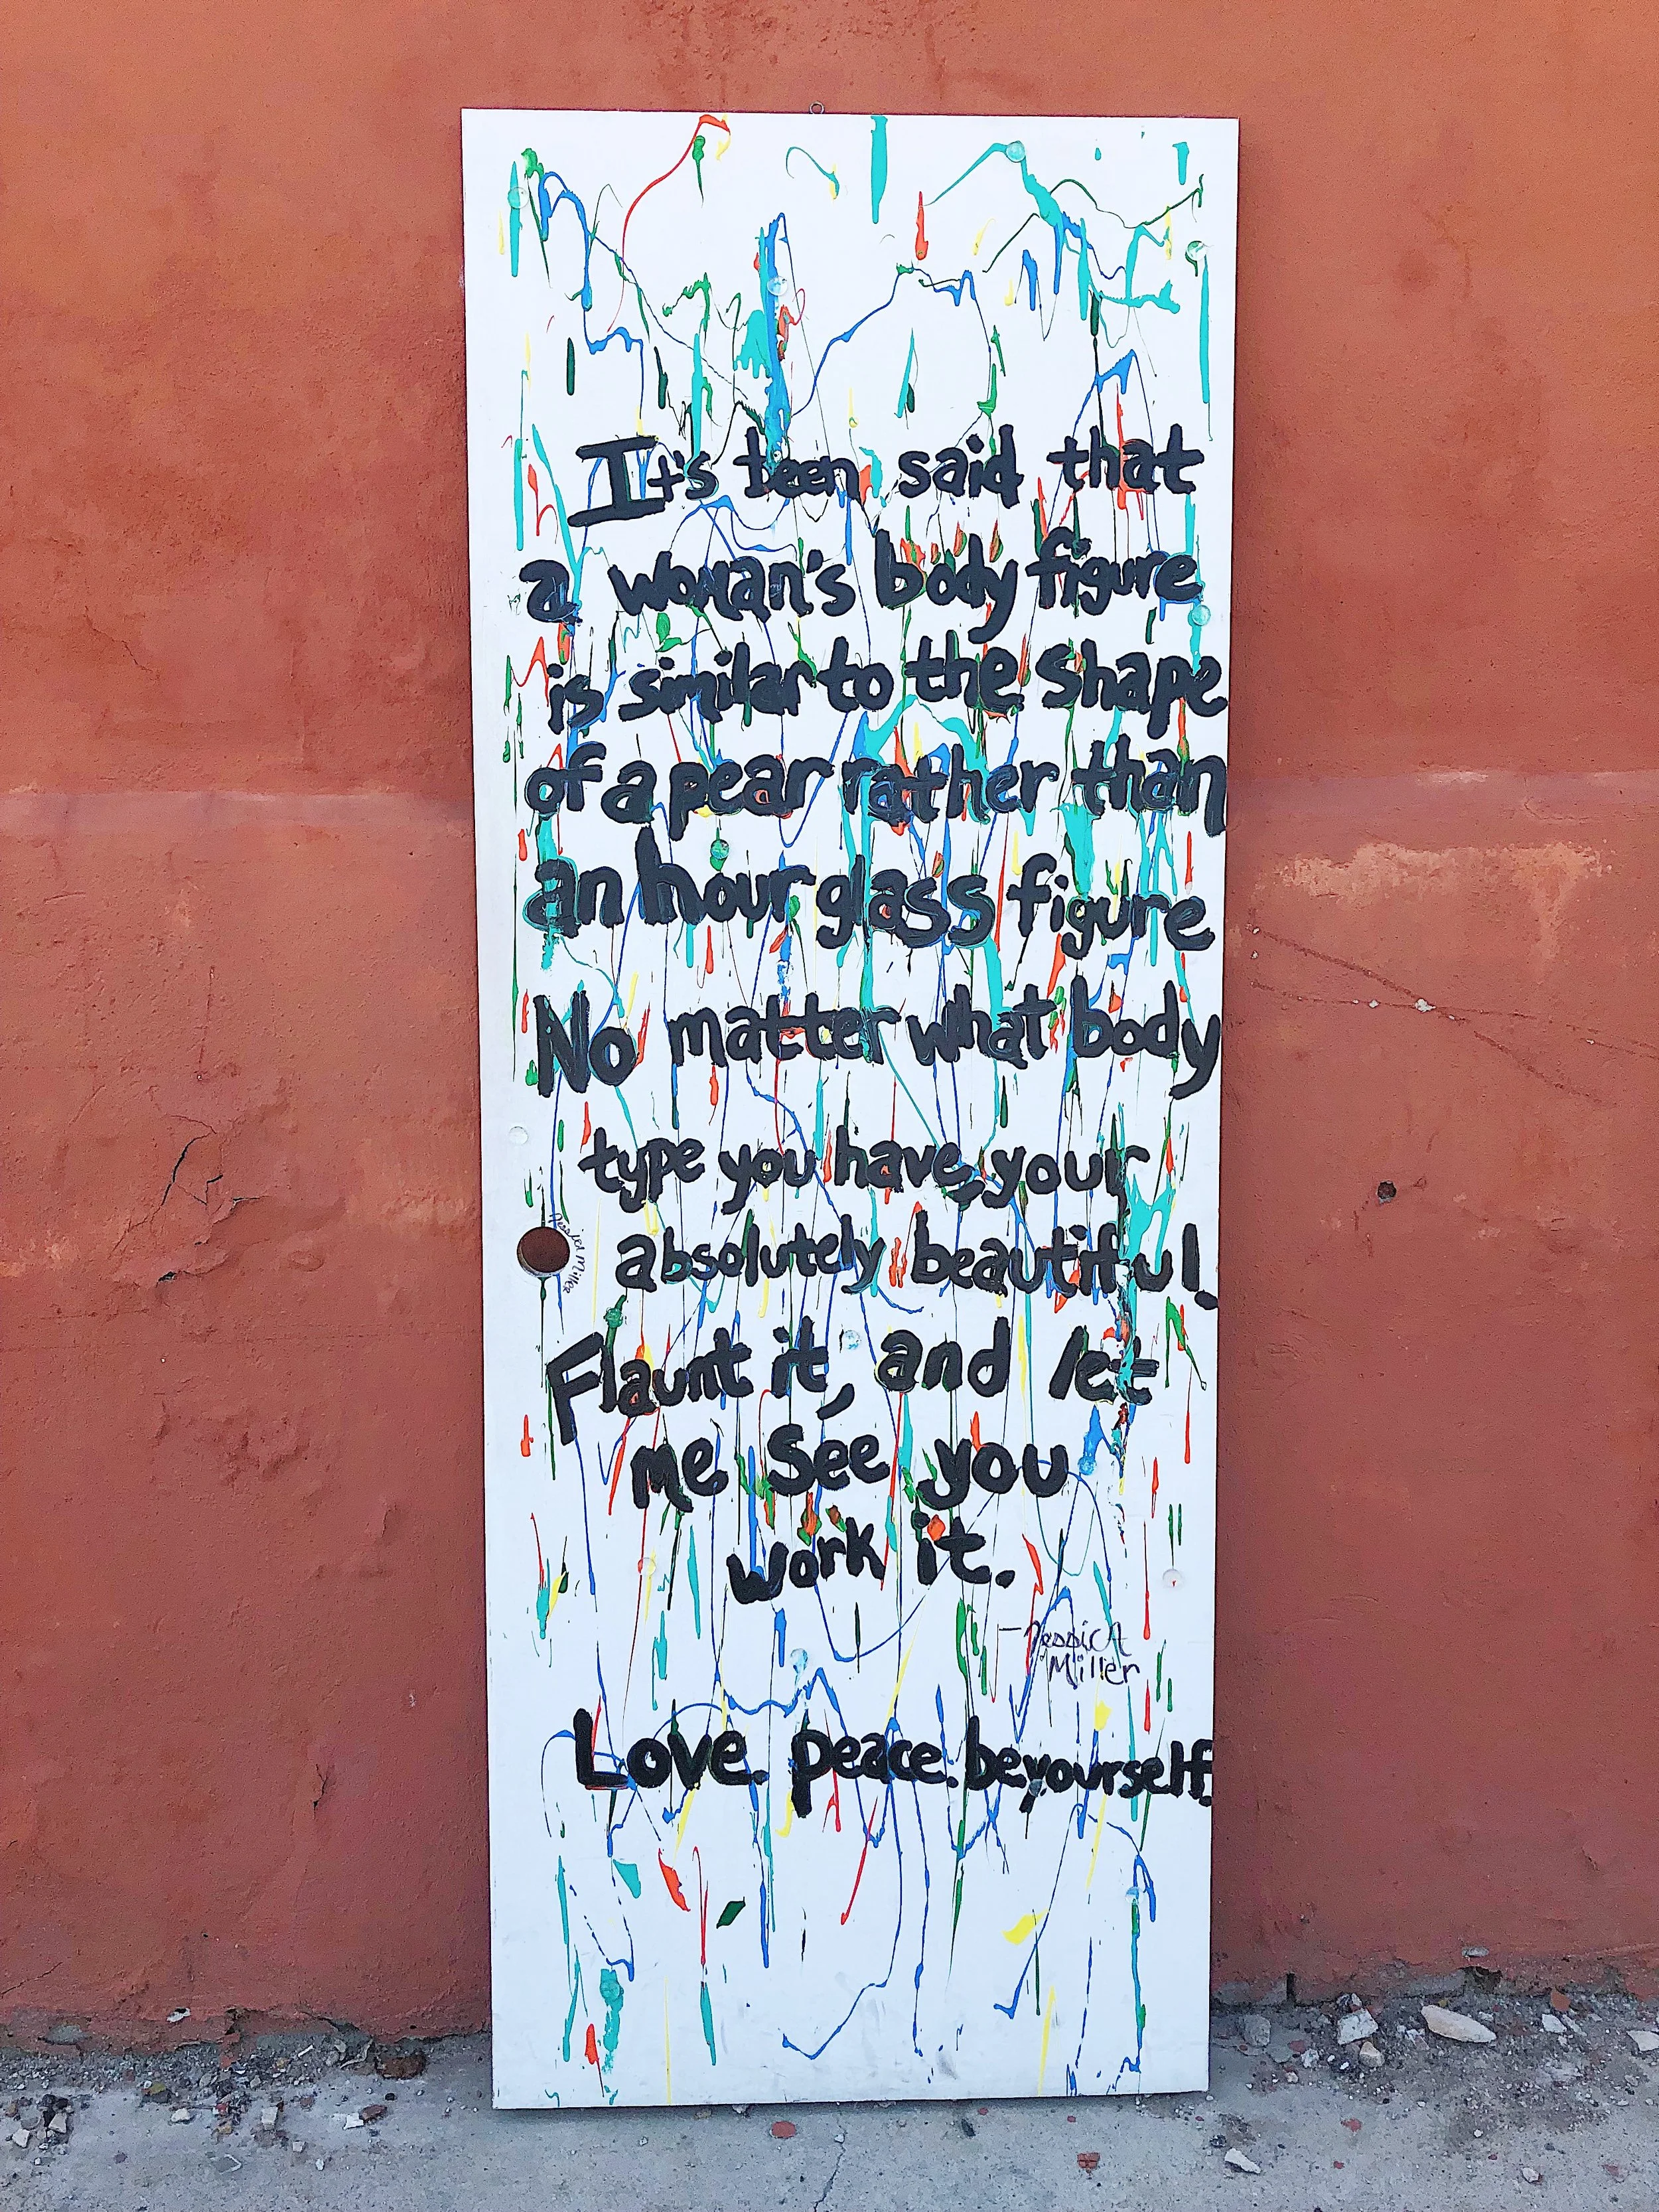 It's been said that
a woman's body figure
is similar to the shape
of a pear rather than
an hour glass figure
No matter what body
type you have, your
absolutely beautiful.
Flaunt it, and let
me see you
work it.
-Jessica
Miller
Love. peace. be yourself.
Jessica Miller